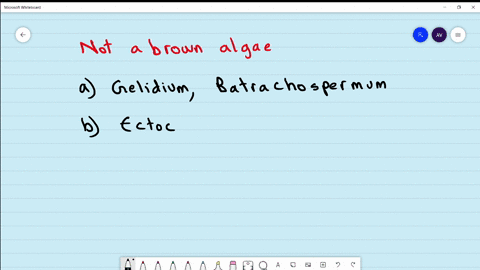 Microsoft Whiteboard
AV
Not a brown algae
a) Gelidium, Batrachospermum
b) Ectoc